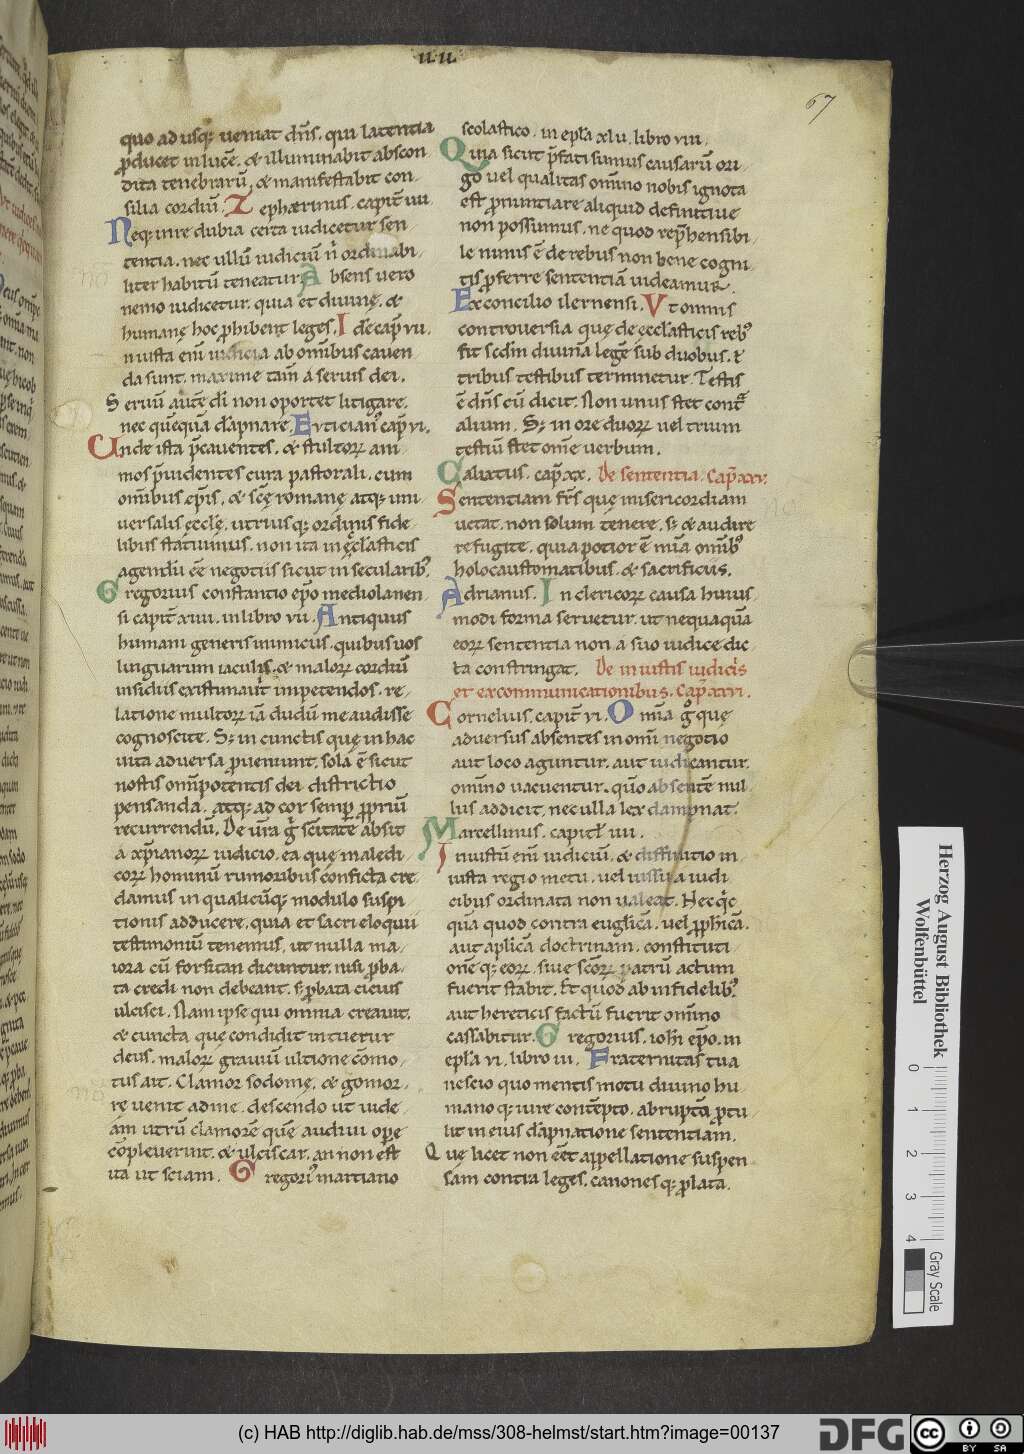 u.u.
67
quo ad usq; ueniat dñs. qui latentia
ꝓducet in lucẽ. & illuminabit abscon
dita tenebrarũ, & manifestabit con-
silia cordiũ. Zephærinus. capit̃ uii
Neq; in re dubia certa iudicetur sen
tentia. nec ullũ iudiciũ ñ ordinabi-
liter habitũ teneatur. Absens uero
nemo iudicetur. quia et diuinę. &
humanę hoc ꝓhibent leges. Idẽ cap̃ vii.
Iniusta eni̅ iudicia ab om̃ibus cauen
da sunt. maxime tam̃ a seruis dei.
Seruũ autẽ dĩ non oportet litigare.
nec quẽquã dãpnare. Euticianꝰ cap̃ vi.
Unde ista p̃cauentes. & stultoꝝ ani
mos p̃uidentes cura pastorali. cum
om̃ibus ep̃is. & scę̃ romanę atq; uni
uersalis ecclę̃. utriusq; ordinis fide-
libus statuimus. non ita in ęcclasticis
agendũ eẽ negotiis sicut in secularibꝰ.
Gregorius constantio ep̃o mediolanen
si capit̃ xiiii. in libro vii. Antiquus
humani generis inimicus. quibus uos
linguarum iaculis. & maloꝝ cordiũ
insidiis existimauit inpetendos. re-
latione multoꝝ iã dudũ me audisse
cognoscite. S; in cunctis quę in hac
uita aduersa ꝓueniunt. sola ẽ sicut
nostis om̃ipotentis dei districtio
pensanda. atq; ad cor semꝑ ꝓpriũ
recurrendũ. De ur̃a g̃ scĩtate absit
a xp̃ianoꝝ iudicio. ea quę maledi-
coꝝ hominũ rumoribus conficta cre
damus in qualicũq; modulo suspi
tionis adducere. quia et sacri eloquii
testimoniũ tenemus. ut nulla ma-
iora cũ forsitan dicuntur. nisi ꝓba-
ta credi non debeant. s; ꝓbata cicius
ulcisci. Nam ipse qui omnia creauit.
& cuncta quę condidit intuetur
deus. maloꝝ grauiũ ultione cõmo-
tus ait. Clamor sodomę. & gomor-
re uenit ad me. descendo ut uide-
am utrũ clamorẽ quẽ audiui opere
cõpleuerint. & ulciscar. an non est
ita ut sciam. Gregoriꝰ martiano
scolastico. in epl̃a xlu. libro viii.
Quia sicut p̃fati sumus causarũ ori-
go uel qualitas om̃ino nobis ignota
est ꝓnuntiare aliquid definitiue
non possumus. ne quod rep̃hensibi-
le nimis ẽ de rebus non bene cogni
tis ꝓferre sententiã uideamur.
Ex concilio ilernensi. Vt omnis
controuersia quę de ecclasticis rebꝰ
fit scd̃m diuinã legẽ sub duobus. t̃
tribus testibus terminetur. Testis
ẽ dñs cũ dicit. Non unus stet cont̃
alium. S; in ore duoꝝ uel trium
testiũ stet omñe uerbum.
Calixtus. cap̃ xx. De sententia. Cap̃ xxv.
Sententiam fr̃s quę misericordiam
uetat. non solum tenere. s; & audire
refugite. quia potior ẽ mĩa om̃ibꝰ
holocaustomatibus. & sacrificiis.
Adrianus. In clericoꝝ causa huius
modi forma seruetur. ut nequaquã
eoꝝ sententia non a suo iudice dic
ta constringat. De iniustis iudiciis
et excommunicationibus. Cap̃ xxvi.
Cornelius. capit̃ vi. Omĩa g̊ quę
aduersus absentes in omĩ negotio
aut loco aguntur. aut iudicantur.
om̃ino uacuentur. qũo absentẽ nul
lus addicit. nec ulla lex dampnat.
Marcellinus. capitł iiii.
Iniustũ eni̅ iudiciũ. & diffinitio in-
iusta regio metu. uel iussu a iudi
cibus ordinata non ualeat. Hec q̃c
quã quod contra euglĩcã. uel ꝓphicã.
aut aplĩcã doctrinam. constituti
onẽ q; eoꝝ. siue sc̃oꝝ patrũ actum
fuerit stabit. Et quod ab infidelibꝰ.
aut hereticis factũ fuerit om̃ino
cassabitur. Gregorius. ioħi ep̃o. in
epl̃a vi. libro iii. Fraternitas tua
nescio quo mentis motu diuino hu-
mano q; iure contẽpto. abruptã ꝓtu-
lit in eius dãpnatione sententiam.
Quę licet non eẽt appellatione suspen
sam contra leges. canones q; ꝓlata.
Herzog August Bibliothek
Wolfenbüttel
0 1 2 3 4
Gray Scale
(c) HAB http://diglib.hab.de/mss/308-helmst/start.htm?image=00137
DFG
cc BY SA